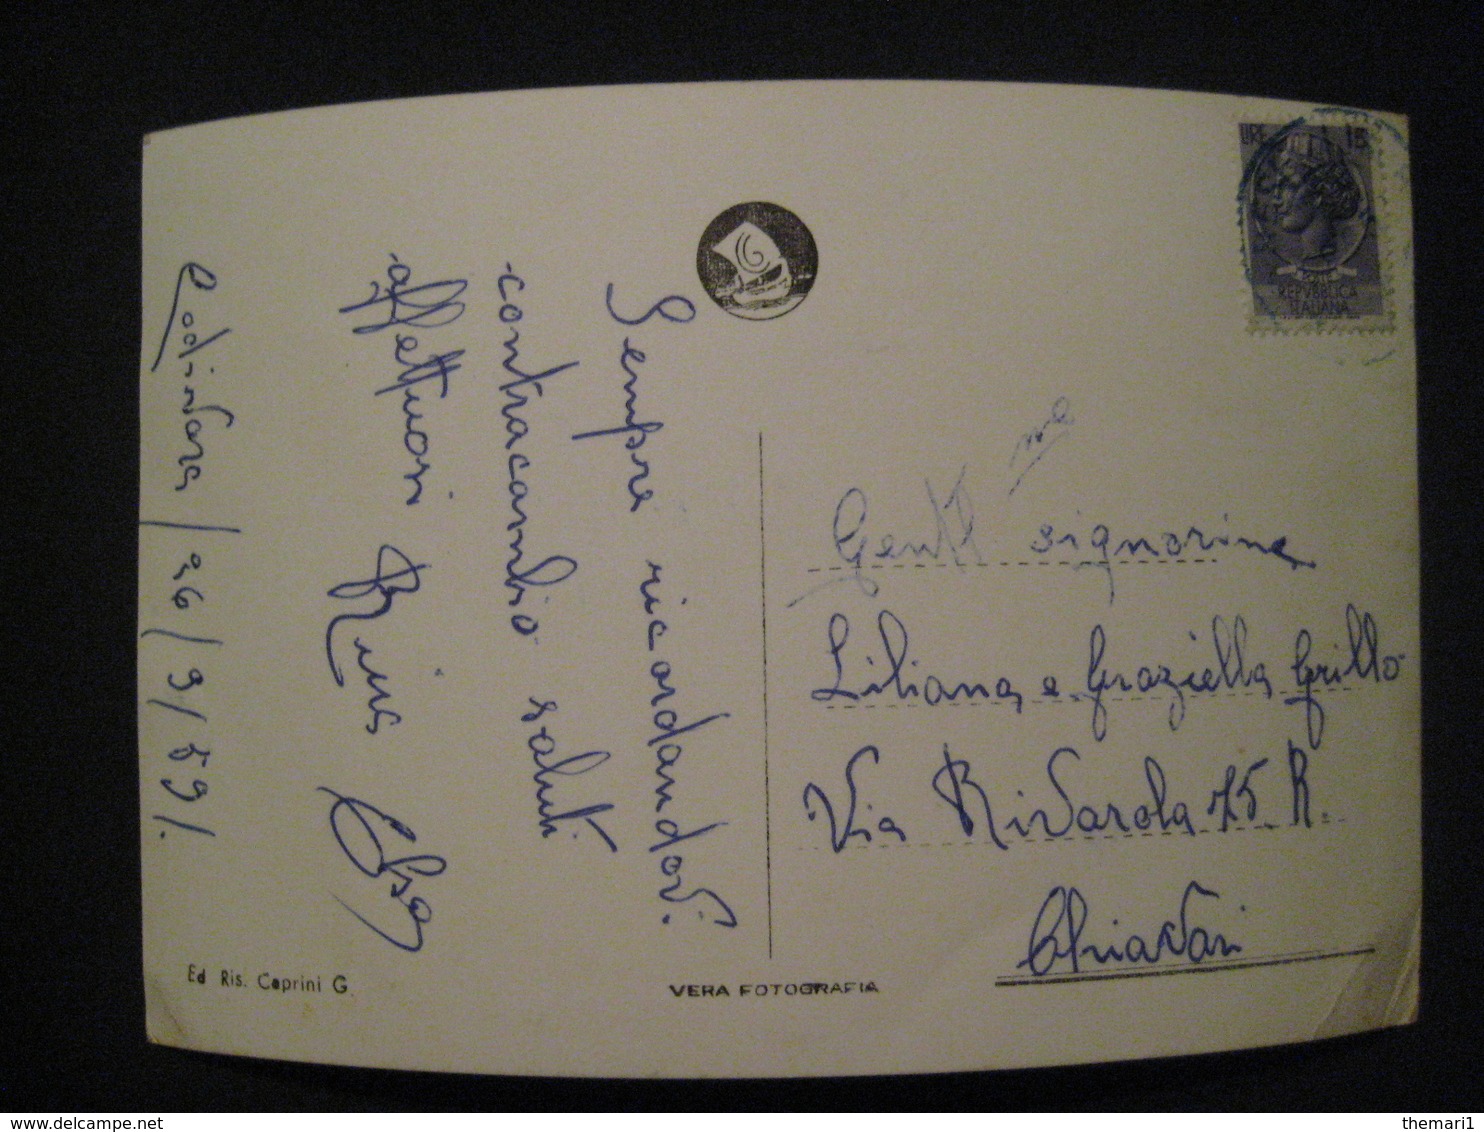 LIRE 15
REPVBBLICA
ITALIANA
Codivara / 26/9/59/.
Sempre ricordandovi.
contracambio saluti
affettuosi Rina
Elsa
Gent me signorine
Liliana e Graziella Grillo
Via Rivarola 75 R.
Chiavari
Ed Ris. Caprini G.
VERA FOTOGRAFIA
themari1